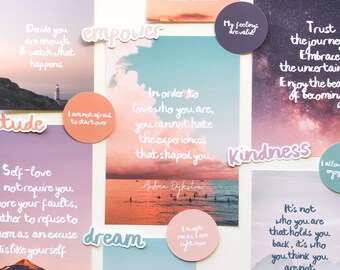 Decide you
are enough
& watch what
happens
empower
My feelings
are valid
Trust
the journey
Embrace
the uncertain
Enjoy the beauty
of becoming
In order to
love who you are,
you cannot hate
the experiences
that shaped you
Andrea Dykstra
I am not afraid
to start over
tude
kindness
I allow
Self-love
not require you
ore your faults,
ther to refuse to
em as an excuse
dislike yourself
dream
I accept
me as I am
right now
It's not
who you are
that holds you
back, it's who
you think you
are not